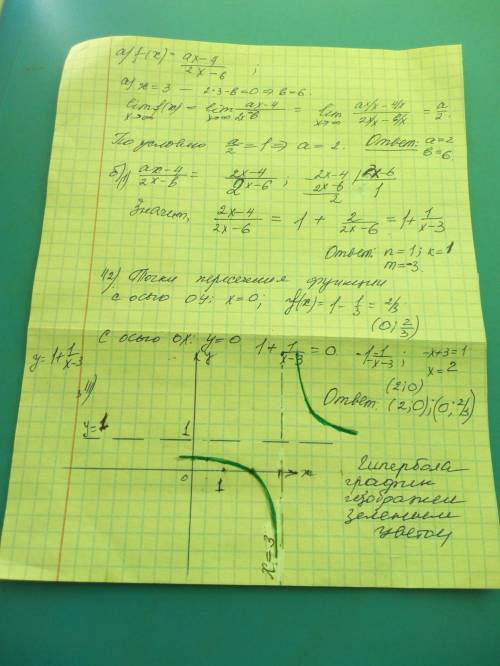 а) f(x) = (ax-4)/(2x-6) ;
а) x=3 — 2·3-b=0 ⇒ b=6.
lim f(x) = lim (ax-4)/(2x-b) = lim (ax/x-4/x)/(2x/x-b/x) = a/2.
x→∞ x→∞ x→∞
По условию a/2 = 1 ⇒ a = 2. Ответ: a=2
b=6.
б) 1) (ax-4)/(2x-b) = (2x-4)/(2x-6) ; 2x-4 | 2x-6
2x-6 1
2
Значит, (2x-4)/(2x-6) = 1 + 2/(2x-6) = 1+ 1/(x-3)
Ответ: n=1; k=1
m=-3.
2) Точки пересечения функции
с осью OY: x=0; y(x) = 1- 1/3 = 2/3
(0; 2/3)
С осью OX: y=0 1+ 1/(x-3) = 0 -x+3=1
x=2
(2;0)
Ответ: (2;0);(0; 2/3)
y=1+ 1/(x-3)
y=1
1
y
0
1
x
x=3
Гипербола
график
изображен
зеленым
цветом